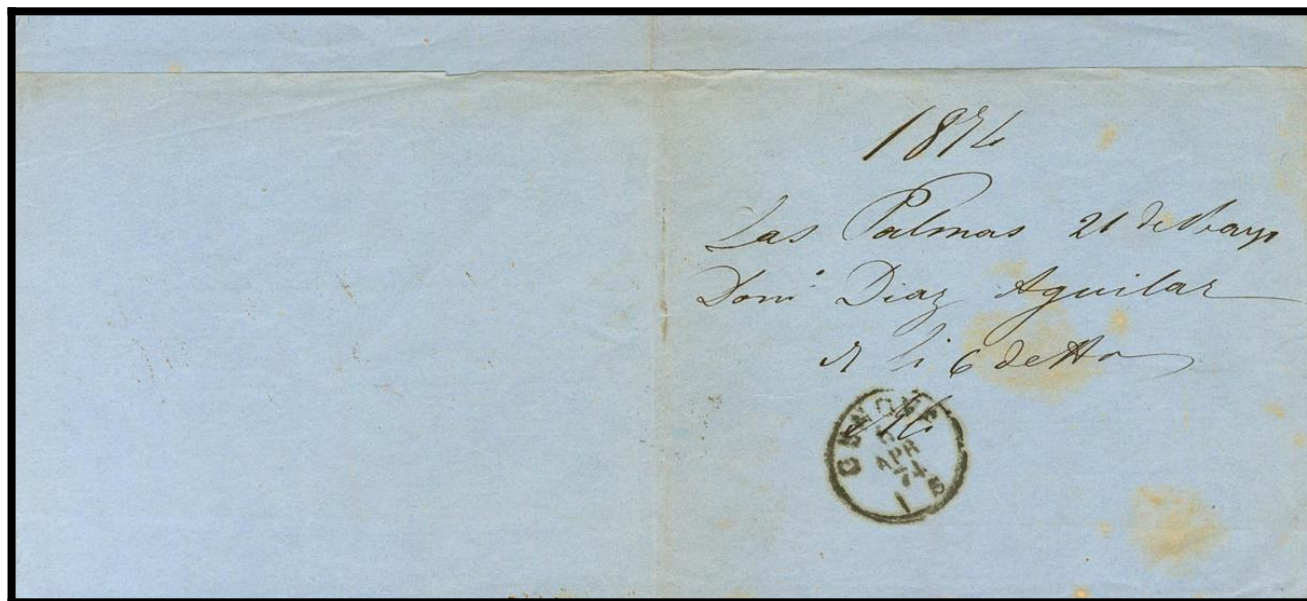 1874
Las Palmas 21 de Marzo
Dom.º Diaz Aguilar
li 6
GENOVA
APR
74